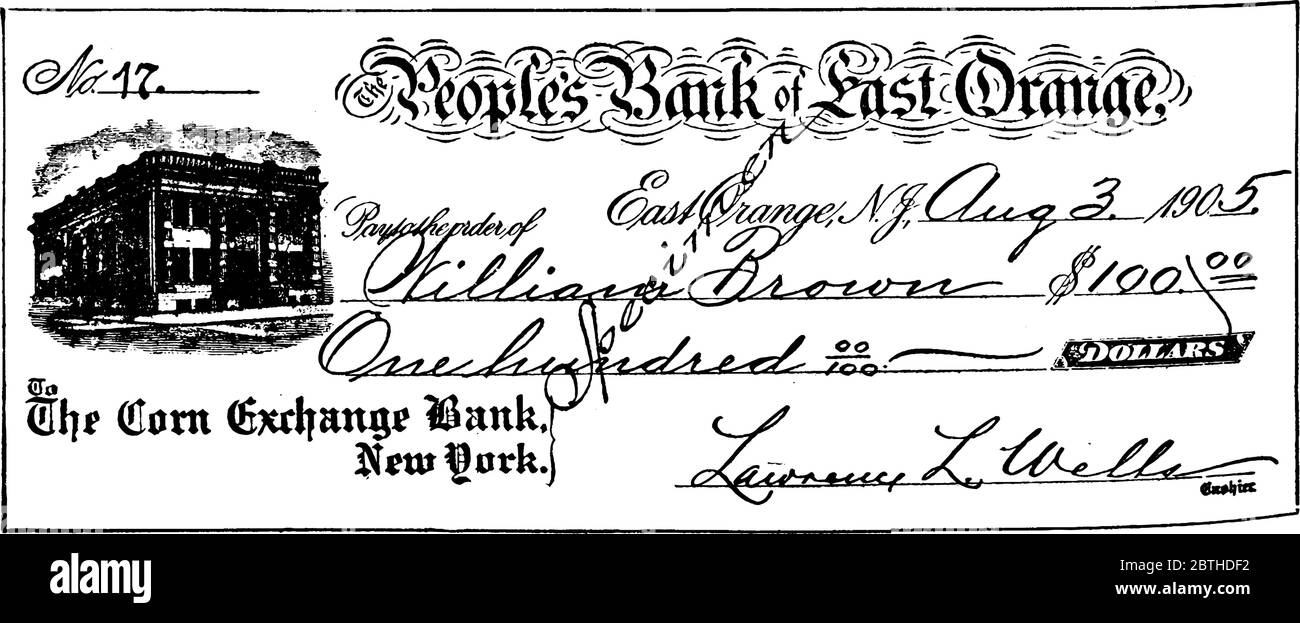 No. 17.
The People's Bank of East Orange,
East Orange, N.J, Aug 3. 1905.
Pay to the order of
William Brown $100.00
One hundred 00/100 DOLLARS
Specimen
To
The Corn Exchange Bank,
New York.
Lawrence L. Wells
Cashier
alamy
Image ID: 2BTHDF2
www.alamy.com